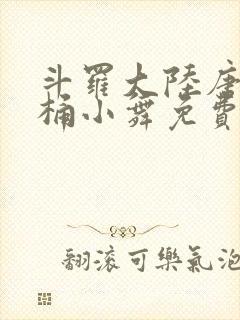 斗羅大陸唐
桶小舞免費
翻滾可樂氣泡